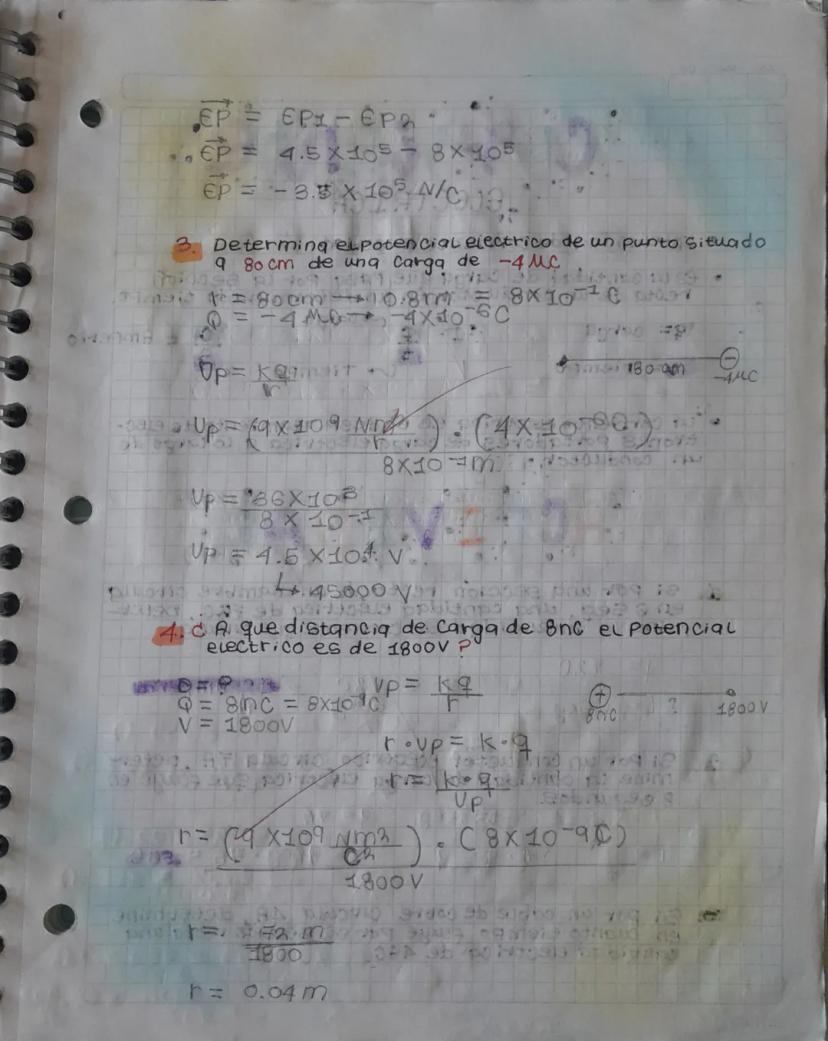 EP = EP1 - EP2
EP = 4.5 X 10⁵ - 8 X 10⁵
EP = -3.5 X 10⁵ N/C
3. Determina el potencial electrico de un punto situado
a 80 cm de una carga de -4 MC
r = 80 cm → 0.8 m = 8 X 10⁻¹ C
Q = -4 MC → -4 X 10⁻⁶ C
Vp = kq / r
-4 MC
Vp = (9 X 10⁹ Nm²/) · (4 X 10⁻⁶ C)
8 X 10⁻¹ m
Vp = 36 X 10³
8 X 10⁻¹
Vp = 4.5 X 10⁴ V
↳ 45000 V
4. ¿ A que distancia de carga de 8nC el potencial
electrico es de 1800V ?
Vp = kq / r
Q = 8nC = 8X10⁻⁹C
8nC ? 1800V
V = 1800V
r · Vp = k · q
r = k · q / Vp
r = (9 X 10⁹ Nm²/C²) · (8 X 10⁻⁹ C)
1800 V
r = 72 · m
1800
r = 0.04 m